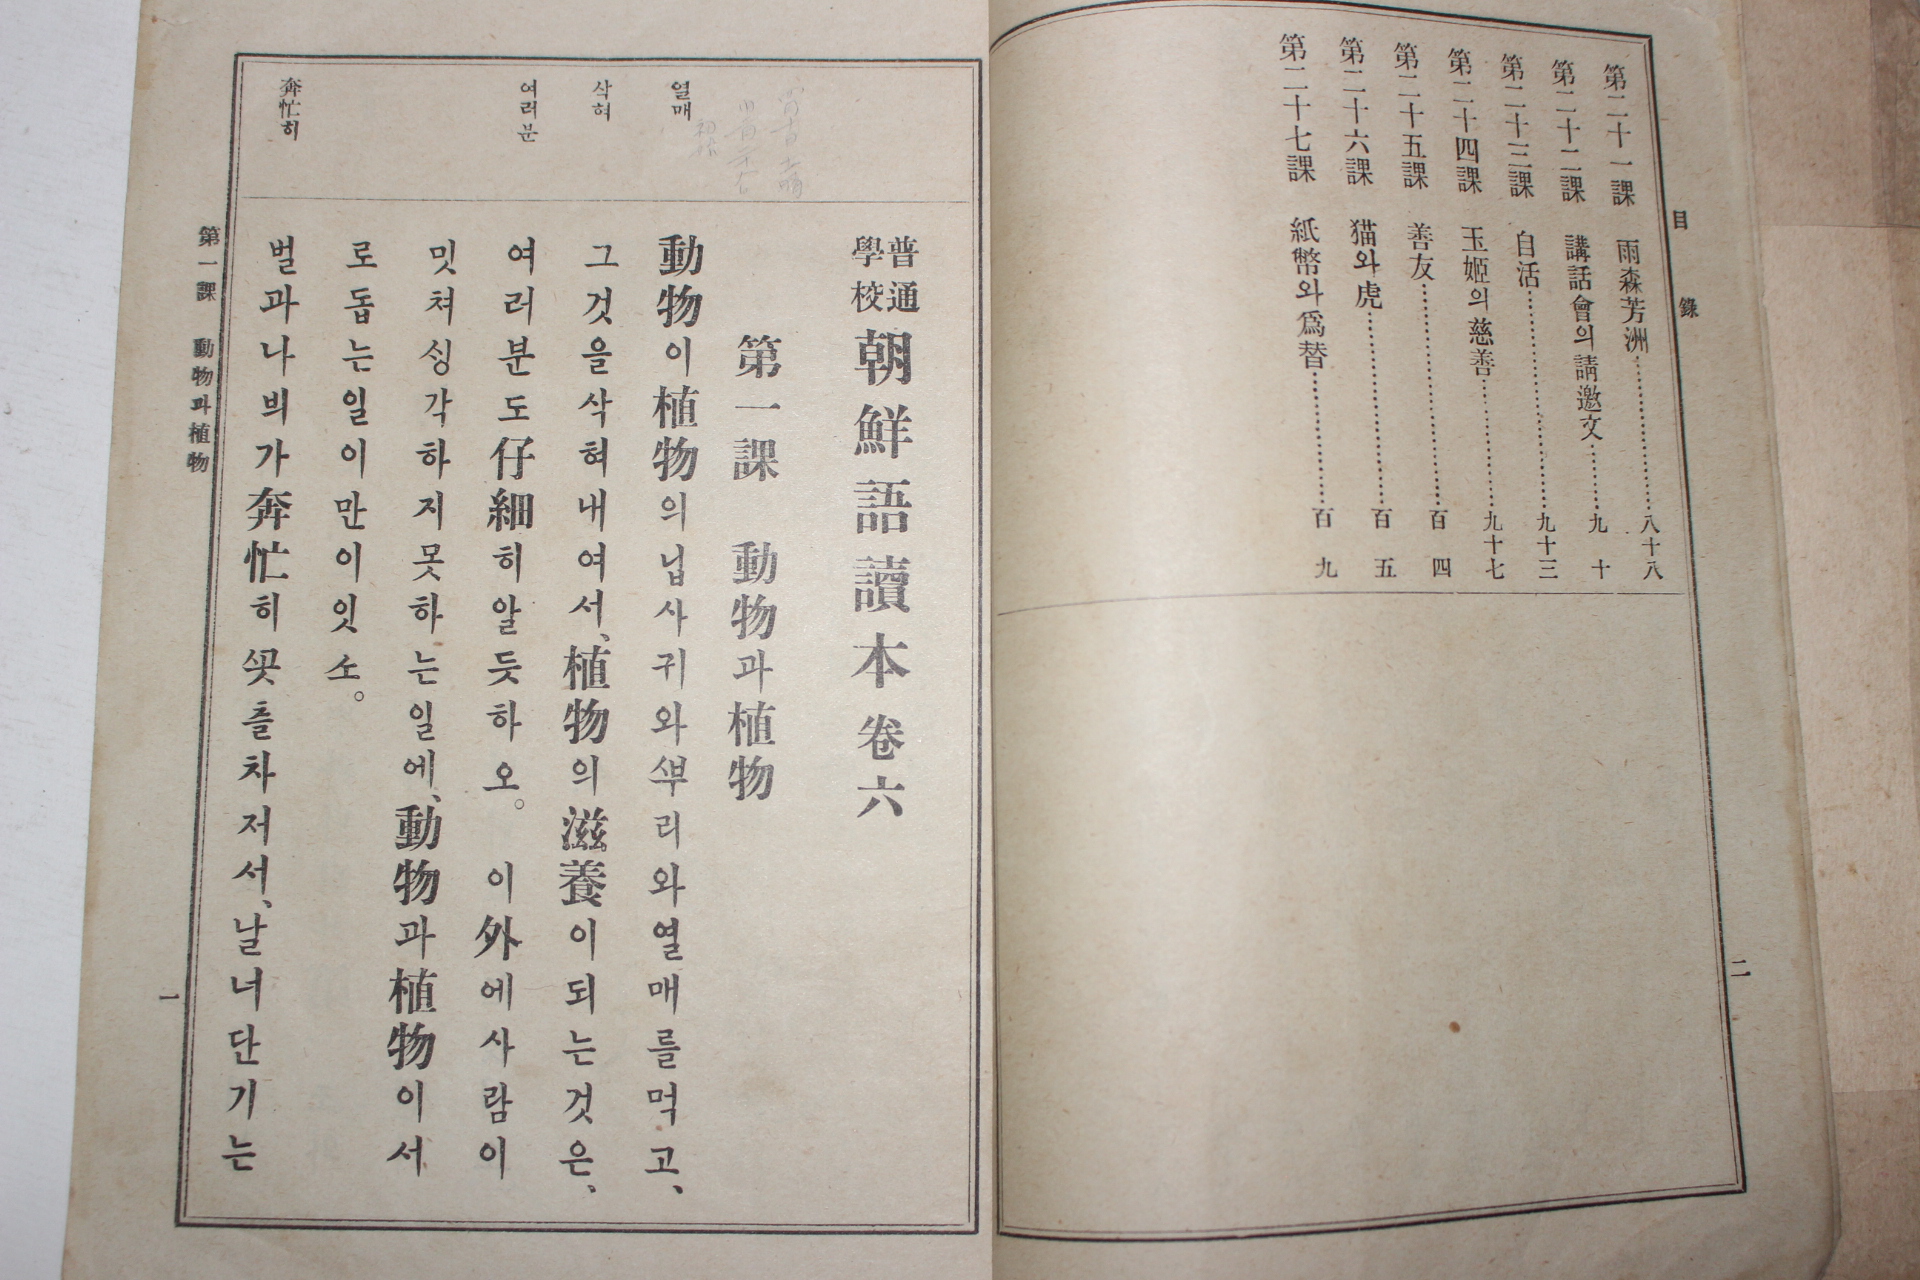 目錄
第二十一課 雨森芳洲……八十八
第二十二課 講話會의請邀文……九十
第二十三課 自活……九十三
第二十四課 玉姬의慈善……九十七
第二十五課 善友……百四
第二十六課 猫와虎……百五
第二十七課 紙幣와爲替……百九
二
普通學校 朝鮮語讀本 卷六
第一課 動物과植物
열매
動物이植物의닙사귀와ᄲᅮ리와열매를먹고、
삭혀
그것을삭혀내여서、植物의滋養이되는것은、
여러분
여러분도仔細히알듯하오。 이外에사람이
밋쳐ᄉᆡᆼ각하지못하는일에、動物과植物이서
로돕는일이만이잇소。
奔忙히
벌과나븨가奔忙히ᄭᅩᆺ츨차저서、날너단기는
第一課 動物과植物
一